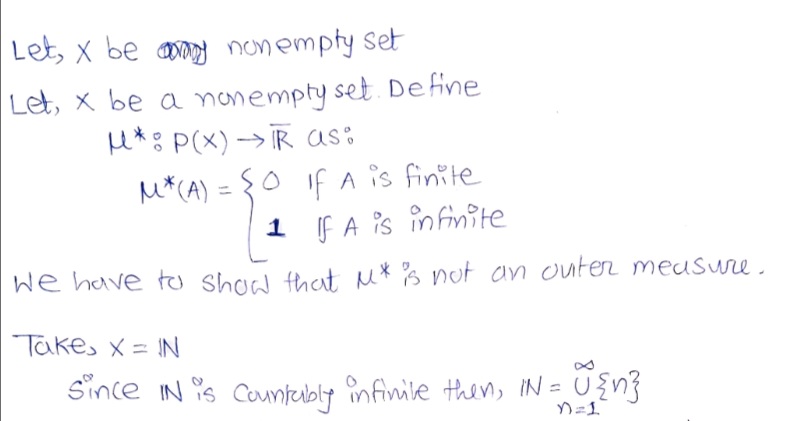 Let, X be nonempty set
Let, X be a nonempty set. Define
μ* : P(X) → ℝ̅ as:
μ*(A) = { 0 If A is finite
1 If A is infinite
We have to show that μ* is not an outer measure.
Take, X = ℕ
Since ℕ is Countably infinite then, ℕ = ∞∪n=1 {n}